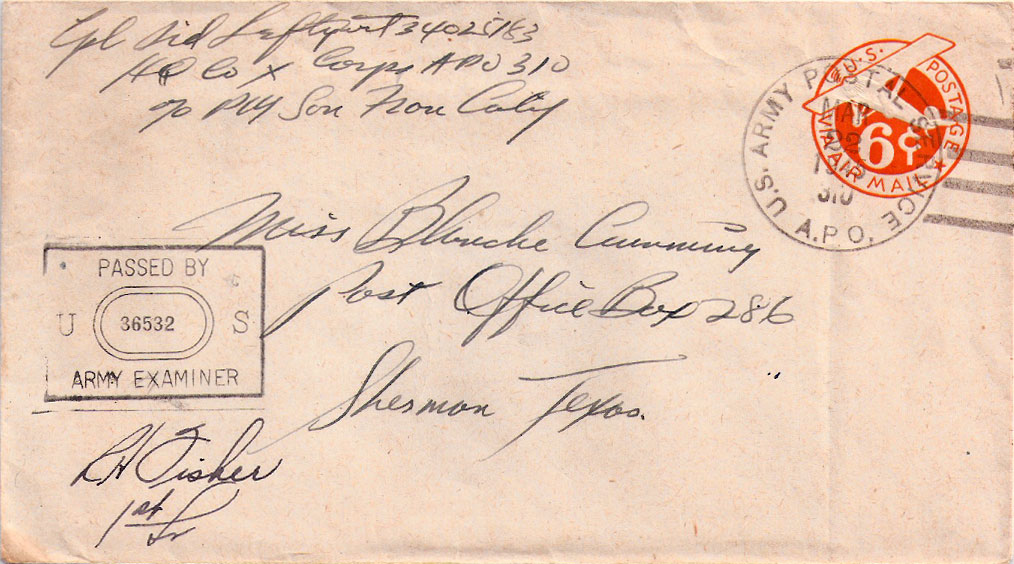 Cpl Sid Leftport 34025183
HQ Co X Corps APO 310
c/o PM San Fran Calif
U.S. POSTAGE
6¢
VIA AIR MAIL
U.S. ARMY POSTAL SERVICE
MAR
22
310
A.P.O.
Miss Blanche Cumming
Post Office Box 286
Sherman Texas.
PASSED BY
U 36532 S
ARMY EXAMINER
RH Fisher
1st Lt